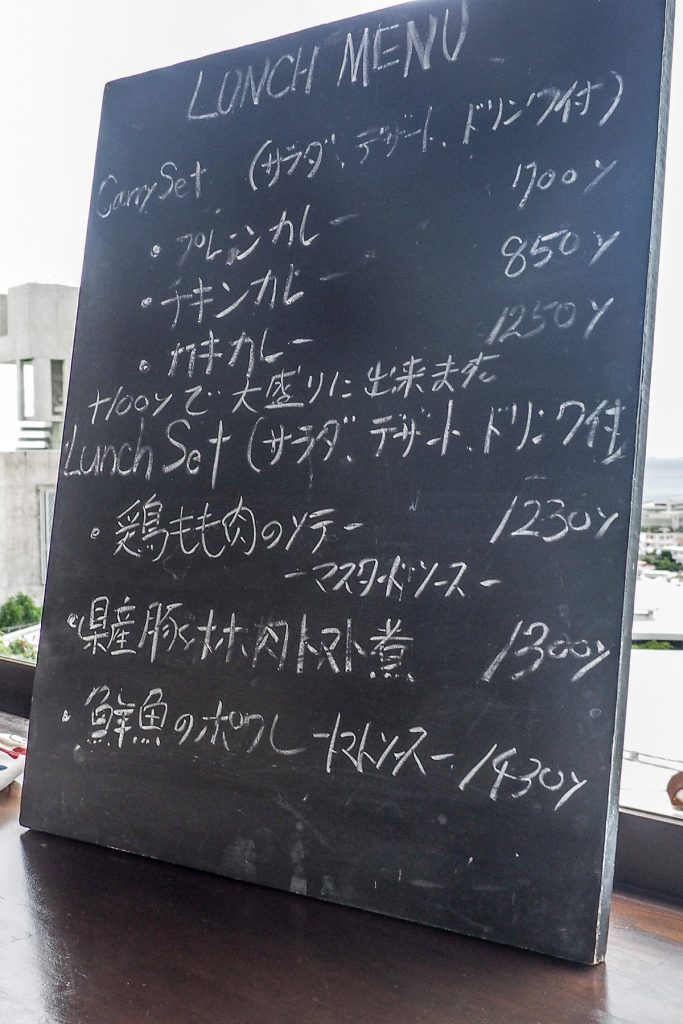 LUNCH MENU
Curry Set (サラダ、デザート、ドリンク付)
・プレーンカレー 1700y
・チキンカレー 850y
・カキカレー 1250y
+100yで大盛りに出来ます
Lunch Set (サラダ、デザート、ドリンク付
・鶏もも肉のソテー 1230y
-マスタードソース-
・県産豚ホホ肉トマト煮 1300y
・鮮魚のポワレ -トマトソース- 1430y